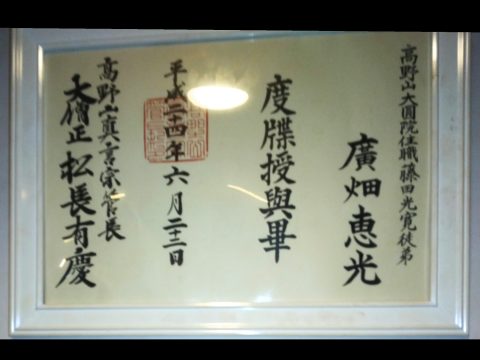 高野山大圓院住職藤田光寛徒弟
廣畑惠光
度牒授與畢
平成二十四年六月二十二日
高野山真言宗管長
大僧正松長有慶